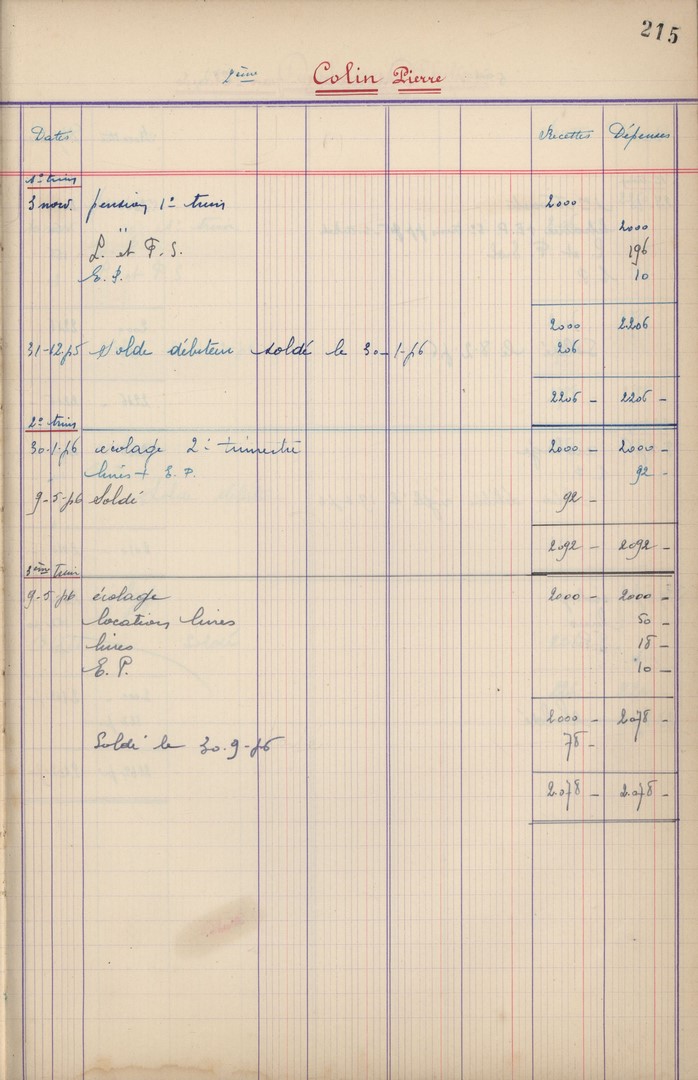 215
2ème Colin Pierre
Dates Recettes Dépenses
1° trim
3 nov. pension 1° trim 2000
" 2000
L. et F. S. 196
E. P. 10
2000 2206
31-12-55 Solde débiteur soldé le 30-1-56 206
2206 - 2206 -
2° trim
30-1-56 écolage 2° trimestre 2000 - 2000 -
livres + E. P. 92 -
9-5-56 Soldé 92 -
2092 - 2092 -
3ème trim
9-5-56 écolage 2000 - 2000 -
locations livres 50 -
livres 18 -
E. P. 10 -
2000 - 2078 -
Soldé le 30-9-56 78 -
2.078 - 2.078 -